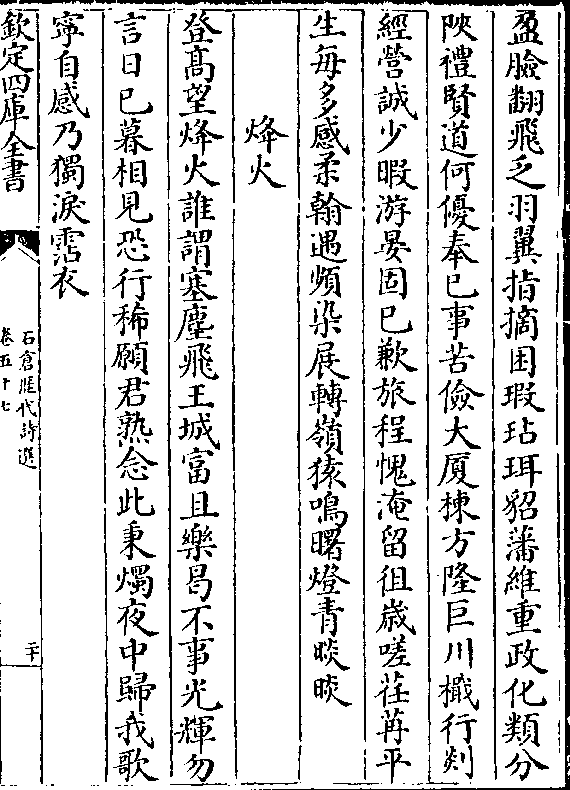 盈臉翻飛乏羽翼指摘困瑕玷珥貂藩維重政化類分
陜禮賢道何優奉已事苦儉大厦棟方隆巨川檝行剡
經營誠少暇游晏固已歉旅程愧淹留徂歳嗟荏苒平
生每多感柔翰遇頻染展轉嶺猿鳴曙燈青睒睒
烽火
登髙望烽火誰謂塞塵飛王城富且樂曷不事光輝勿
言日已暮相見恐行稀願君熟念此秉燭夜中歸我歌
寧自感乃獨淚霑衣
欽定四庫全書
石倉歴代詩選
卷五十七
二十